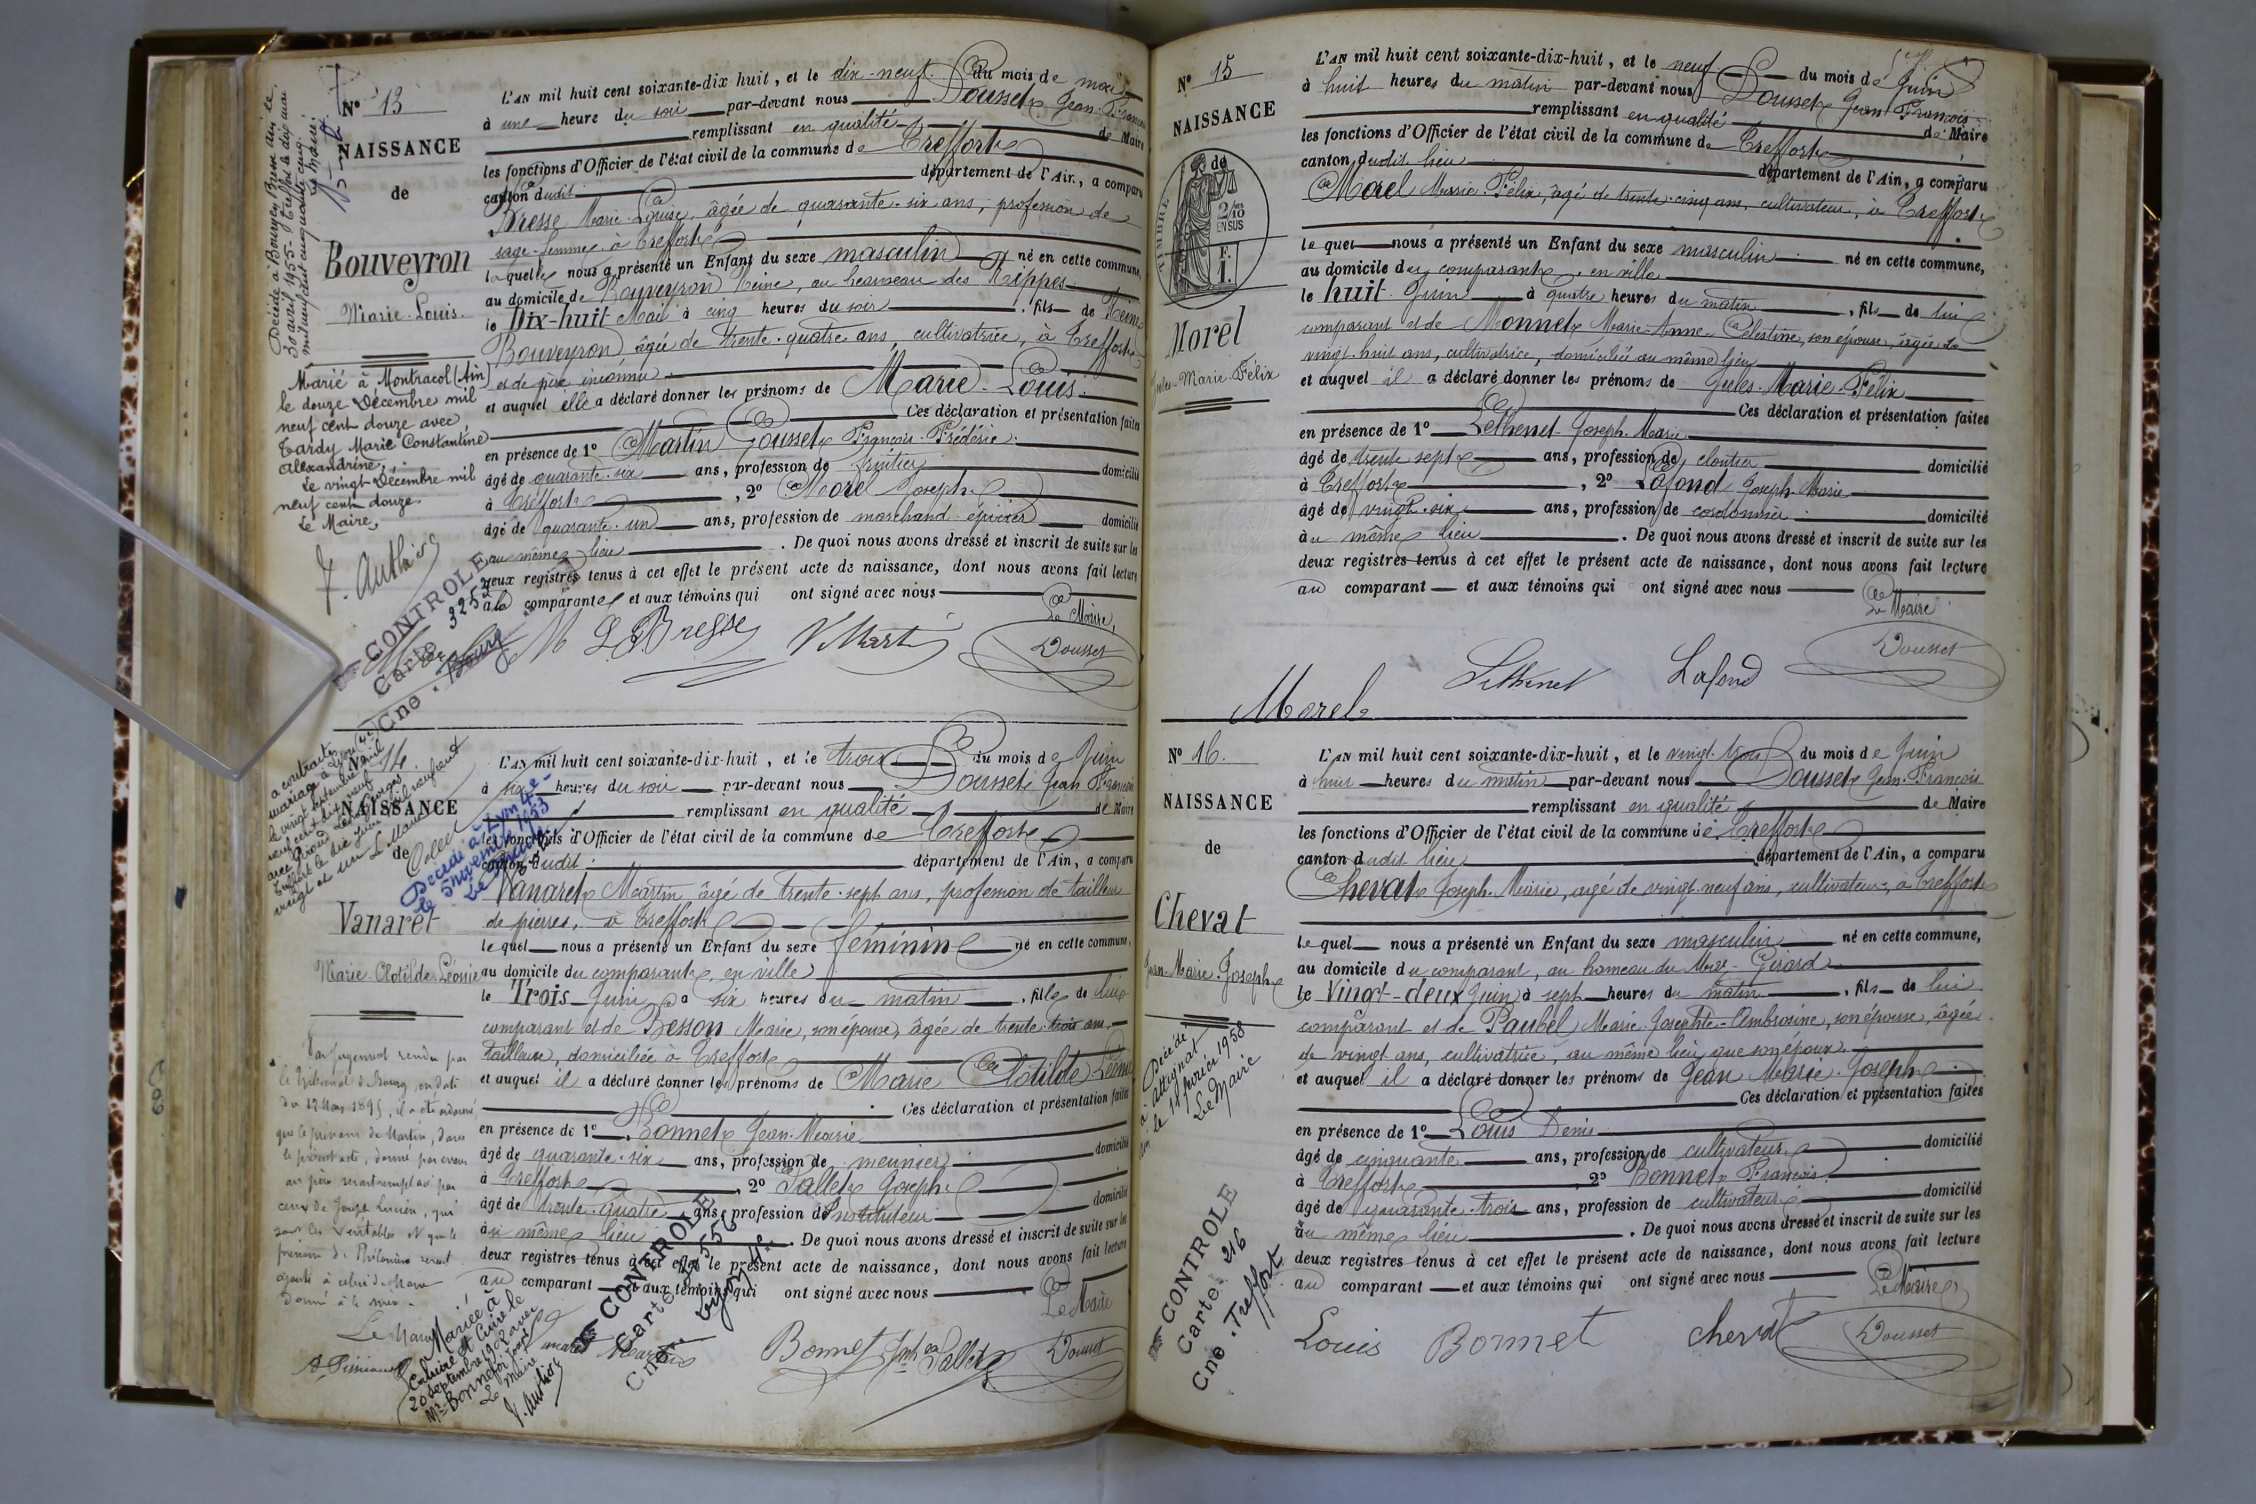 N° 13
NAISSANCE
de
Bouveyron
Marie-Louis.
Décédé à Bourg en Bresse ain le
30 avril 1955. Treffort le dix mai
mil neuf cent cinquante cinq
Le Maire:
Marié à Montracol (Ain)
le douze Décembre mil
neuf cent douze avec
Tardy Marie Constantine
Alexandrine.
Le vingt Décembre mil
neuf cent douze.
Le Maire,
CONTROLE
Carte 3252
Cne. Bourg
L'AN mil huit cent soixante-dix huit, et le dix-neuf du mois de mai
à une heure du soir par-devant nous Dousset Jean-François
remplissant en qualité de Maire
les fonctions d'Officier de l'état civil de la commune de Treffort
canton dudit département de l'Ain, a comparu
Bresse Marie-Louise, âgée de quarante-six ans, profession de
sage-femme à Treffort
laquelle nous a présenté un Enfant du sexe masculin né en cette commune,
au domicile de Bouveyron Reine, au hameau des Rippes
le Dix-huit Mai à cinq heures du soir, fils de Reine
Bouveyron âgée de trente-quatre ans, cultivatrice, à Treffort
et de père inconnu
et auquel elle a déclaré donner les prénoms de Marie-Louis.
Ces déclaration et présentation faites
en présence de 1° Martin Gousset François-Frédéric.
âgé de quarante-six ans, profession de fruitier domicilié
à Treffort, 2° Morel Joseph
âgé de quarante-un ans, profession de marchand-épicier domicilié
au même lieu. De quoi nous avons dressé et inscrit de suite sur les
deux registres tenus à cet effet le présent acte de naissance, dont nous avons fait lecture
à la comparante et aux témoins qui ont signé avec nous
Le Maire,
Bresse Dousset
N° 14.
NAISSANCE
de
Vanaret
Marie-Clotilde-Léonie
a contracté
mariage à Lyon
le vingt septembre mil
neuf cent dix neuf
avec
Treffort le dix Juin
vingt et un Le Maire
Décédée à Lyon 4e
le 5 novembre 1953
Par jugement rendu par
le Tribunal de Bourg, en date
du 12 Mars 1895, il a été ordonné
que le prénom de Martin, dans
le présent acte, donné par erreur
au père serait remplacé par
ceux de Joseph Lucien, qui
sont les véritables et que le
prénom de Philomène serait
ajouté à celui de Marie
donné à la mère.
Le Maire
Mariée à
Caluire et Cuire le
20 septembre
Le Maire
CONTROLE
Carte 556
Cne. Lyon 4e
L'AN mil huit cent soixante-dix-huit, et le trois du mois de Juin
à six heures du soir par-devant nous Dousset Jean François
remplissant en qualité de Maire
les fonctions d'Officier de l'état civil de la commune de Treffort
canton dudit département de l'Ain, a comparu
Vanaret Martin âgé de trente-sept ans, profession de tailleur
de pierres, à Treffort
lequel nous a présenté un Enfant du sexe féminin né en cette commune,
au domicile du comparant, en ville
le Trois Juin à six heures du matin, fille de lui
comparant et de Besson Marie, son épouse, âgée de trente-trois ans,
tailleuse, domiciliée à Treffort
et auquel il a déclaré donner les prénoms de Marie Clotilde Léonie
Ces déclaration et présentation faites
en présence de 1° Bonnet Jean-Marie
âgé de quarante-six ans, profession de meunier domicilié
à Treffort, 2° Pallet Joseph
âgé de trente-quatre ans, profession d'Instituteur domicilié
au même lieu. De quoi nous avons dressé et inscrit de suite sur les
deux registres tenus à cet effet le présent acte de naissance, dont nous avons fait lecture
au comparant et aux témoins qui ont signé avec nous
Le Maire
Bonnet Pallet Dousset
N° 15
NAISSANCE
de
TIMBRE
2/10
EN SUS
Morel
Jules-Marie-Félix
L'AN mil huit cent soixante-dix-huit, et le neuf du mois de Juin
à huit heures du matin par-devant nous Dousset Jean François
remplissant en qualité de Maire
les fonctions d'Officier de l'état civil de la commune de Treffort
canton dudit lieu département de l'Ain, a comparu
Morel Marie-Félix, âgé de trente-cinq ans, cultivateur, à Treffort
lequel nous a présenté un Enfant du sexe masculin né en cette commune,
au domicile du comparant, en ville
le huit Juin à quatre heures du matin, fils de lui
comparant et de Monnet Marie-Anne-Célestine, son épouse, âgée de
vingt-huit ans, cultivatrice, domiciliée au même lieu
et auquel il a déclaré donner les prénoms de Jules-Marie-Félix
Ces déclaration et présentation faites
en présence de 1° Lethenet Joseph-Marie
âgé de trente sept ans, profession de cloutier domicilié
à Treffort, 2° Lafond Joseph-Marie
âgé de vingt-six ans, profession de cordonnier domicilié
au même lieu. De quoi nous avons dressé et inscrit de suite sur les
deux registres tenus à cet effet le présent acte de naissance, dont nous avons fait lecture
au comparant et aux témoins qui ont signé avec nous
Le Maire
Morel Lethenet Lafond Dousset
N° 16.
NAISSANCE
de
Chevat
Jean-Marie-Joseph
Décédé
à Attignat
le 14 février 1958
Le Maire
CONTROLE
Carte 216
Cne. Treffort
L'AN mil huit cent soixante-dix-huit, et le vingt-trois du mois de Juin
à huit heures du matin par-devant nous Dousset Jean-François
remplissant en qualité de Maire
les fonctions d'Officier de l'état civil de la commune de Treffort
canton dudit lieu département de l'Ain, a comparu
Chevat Joseph-Marie, âgé de vingt-neuf ans, cultivateur, à Treffort
lequel nous a présenté un Enfant du sexe masculin né en cette commune,
au domicile du comparant, au hameau du Mas-Girard
le Vingt-deux Juin à sept heures du matin, fils de lui
comparant et de Paubel Marie-Josephte-Ambrosine, son épouse, âgée
de vingt ans, cultivatrice, au même lieu que son époux.
et auquel il a déclaré donner les prénoms de Jean Marie-Joseph
Ces déclaration et présentation faites
en présence de 1° Louis Denis
âgé de cinquante ans, profession de cultivateur domicilié
à Treffort, 2° Bonnet François
âgé de quarante-trois ans, profession de cultivateur domicilié
au même lieu. De quoi nous avons dressé et inscrit de suite sur les
deux registres tenus à cet effet le présent acte de naissance, dont nous avons fait lecture
au comparant et aux témoins qui ont signé avec nous
Le Maire
Louis Bonnet Chevat Dousset